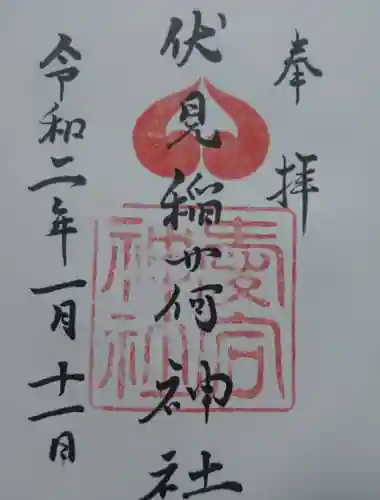 奉拝
伏見稲荷神社
令和二年一月十一日
愛宕神社